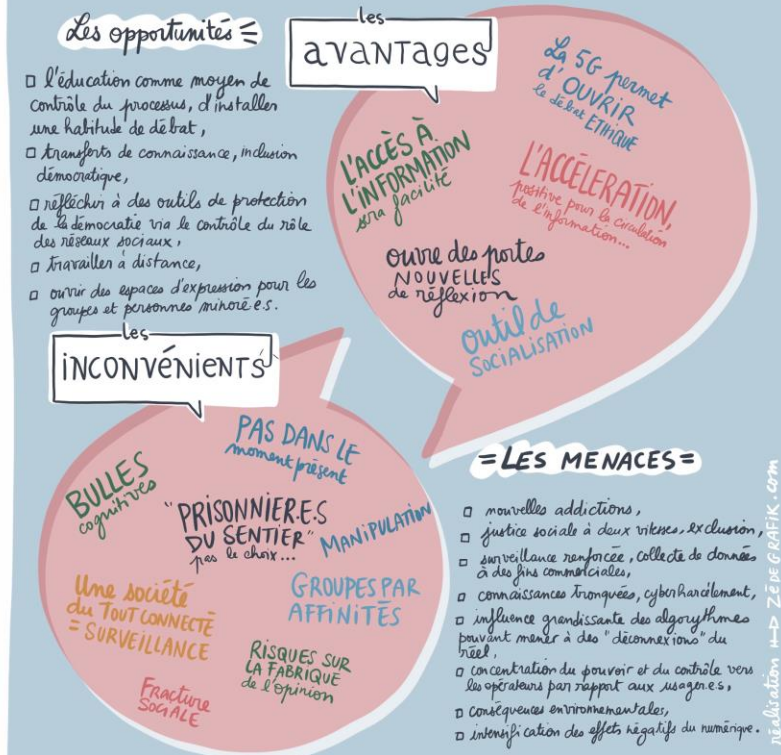 Les opportunités
l'éducation comme moyen de
contrôle du processus, d'installer
une habitude de débat,
transferts de connaissance, inclusion
démocratique,
réfléchir à des outils de protection
de la démocratie via le contrôle du rôle
des réseaux sociaux,
travailler à distance,
ouvrir des espaces d'expression pour les
groupes et personnes minoré·e·s.
les
avantages
La 5G permet
d'OUVRIR
le débat ETHIQUE
L'ACCÈS À
L'INFORMATION
sera facilité
L'ACCÉLERATION,
positive pour la circulation
de l'information...
ouvre des portes
NOUVELLES
de réflexion
outil de
SOCIALISATION
les
inconvénients
PAS DANS LE
moment présent
BULLES
cognitives
"PRISONNIER.E.S
DU SENTIER"
pas le choix...
MANIPULATION
Une société
du TOUT CONNECTÉ
= SURVEILLANCE
GROUPES PAR
AFFINITÉS
RISQUES SUR
LA FABRIQUE
de l'opinion
Fracture
SOCIALE
= LES MENACES =
nouvelles addictions,
justice sociale à deux vitesses, exclusion,
surveillance renforcée, collecte de données
à des fins commerciales,
connaissances tronquées, cyberharcèlement,
influence grandissante des algorythmes
pouvant mener à des "déconnexions" du
réel,
concentration du pouvoir et du contrôle vers
les opérateurs par rapport aux usager.e.s,
conséquences environnementales,
intensification des effets négatifs du numérique.
réalisation H-D ZÉPÉGRAFIK.com